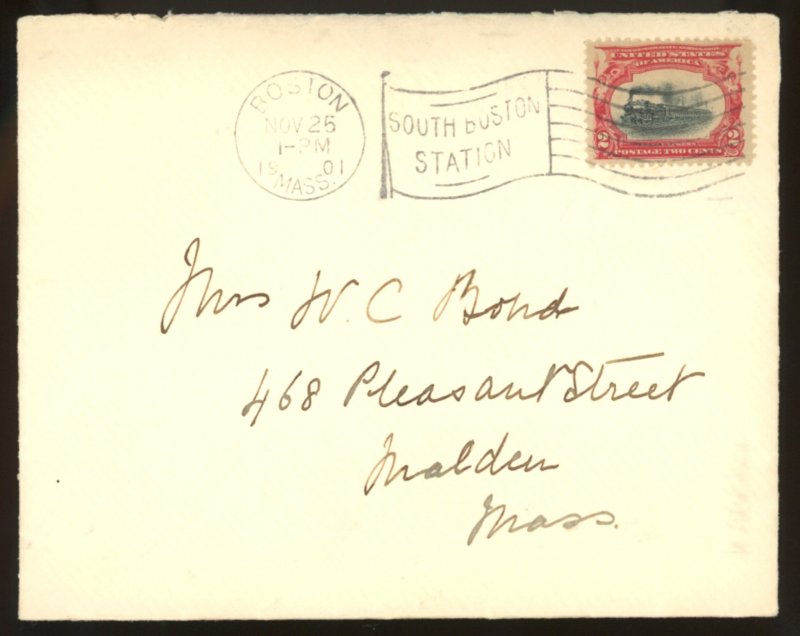 BOSTON
NOV 25
1-PM
19 01
MASS.
SOUTH BOSTON
STATION
UNITED STATES
OF AMERICA
2 2
POSTAGE TWO CENTS
Mrs W. C Bond
468 Pleasant Street
Malden
Mass.